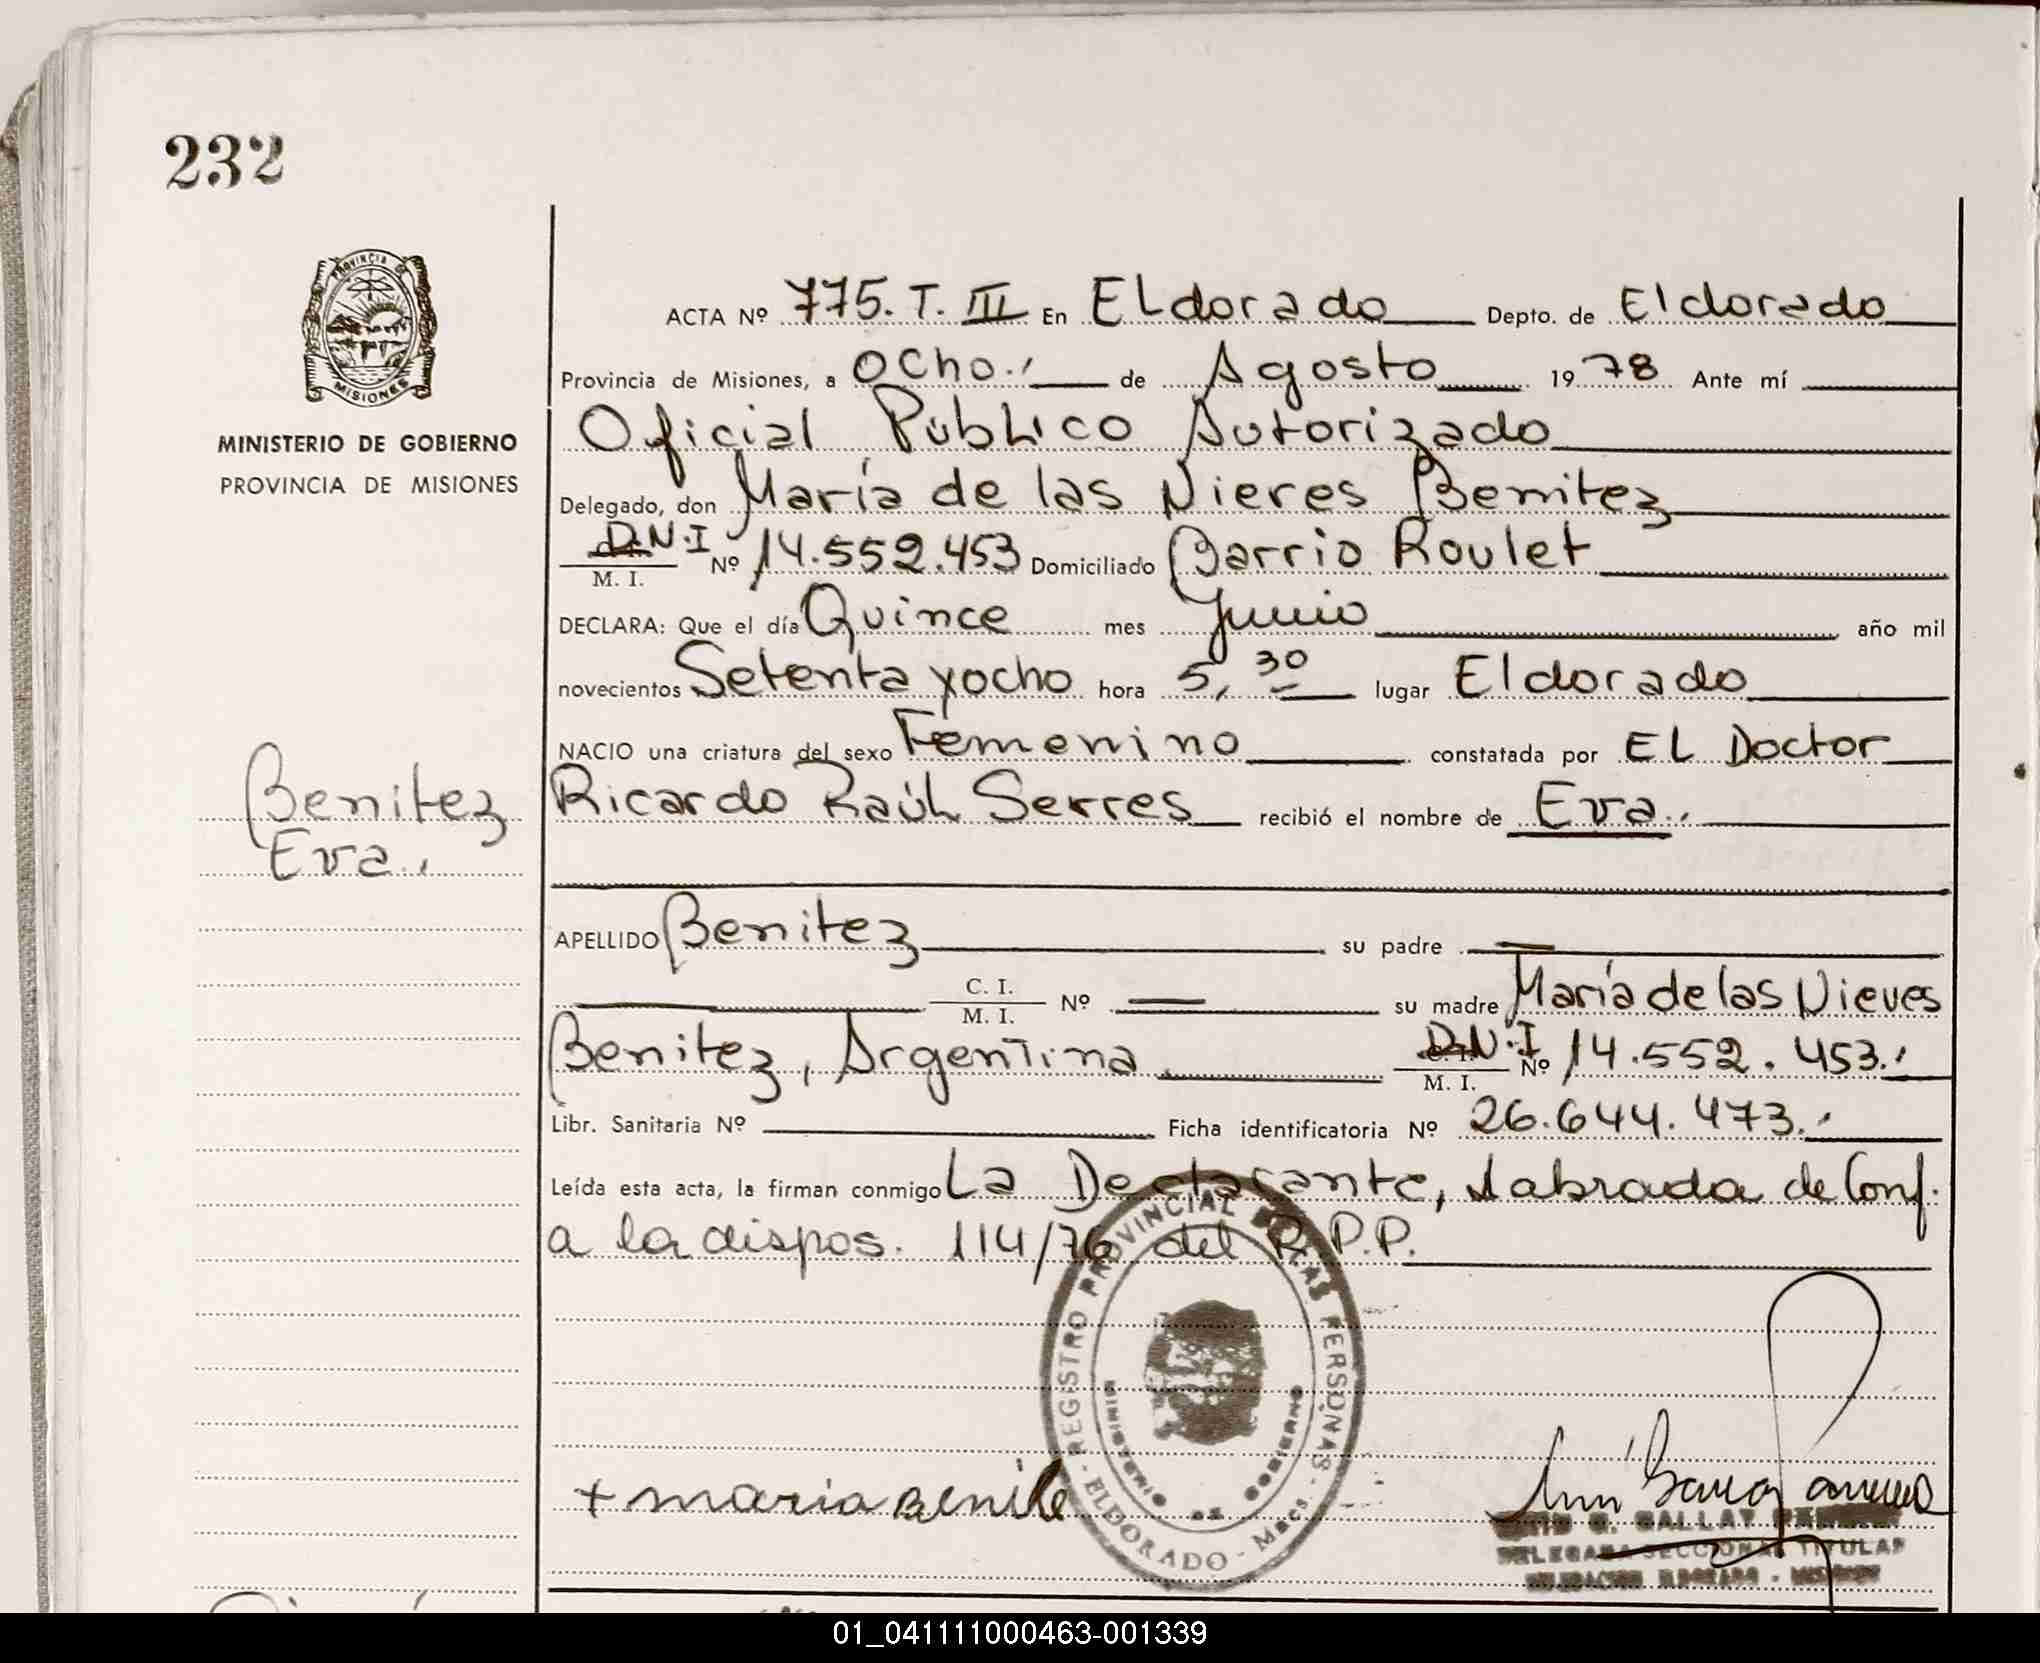 232
PROVINCIA DE
MISIONES
MINISTERIO DE GOBIERNO
PROVINCIA DE MISIONES
ACTA Nº 775. T. III En ELdorado Depto. de Eldorado
Provincia de Misiones, a Ocho.- de Agosto 1978 Ante mí
Oficial Público Autorizado
Delegado, don María de las Nieves Benitez
D.N.I
M. I. Nº 14.552.453 Domiciliado Barrio Roulet
DECLARA: Que el día Quince mes Junio año mil
novecientos Setenta yocho hora 5,30 lugar Eldorado
NACIO una criatura del sexo Femenino constatada por EL Doctor
Ricardo Raúl Serres recibió el nombre de Eva.-
Benitez
Eva.
APELLIDO Benitez su padre —
C. I.
M. I. Nº — su madre María de las Nieves
Benitez, Argentina. D.N.I
M. I. Nº 14.552.453.-
Libr. Sanitaria Nº Ficha identificatoria Nº 26.644.473.-
Leída esta acta, la firman conmigo La Declarante, Labrada de Conf.
a la dispos. 114/76 del R.P.P.
REGISTRO PROVINCIAL DE LAS PERSONAS - ELDORADO - Mnes. -
MINISTERIO DE GOBIERNO
+ maria Benite
G. GALLAY
DELEGADA SECCIONAL TITULAR
DELEGACION ELDORADO - MISIONES
01_041111000463-001339